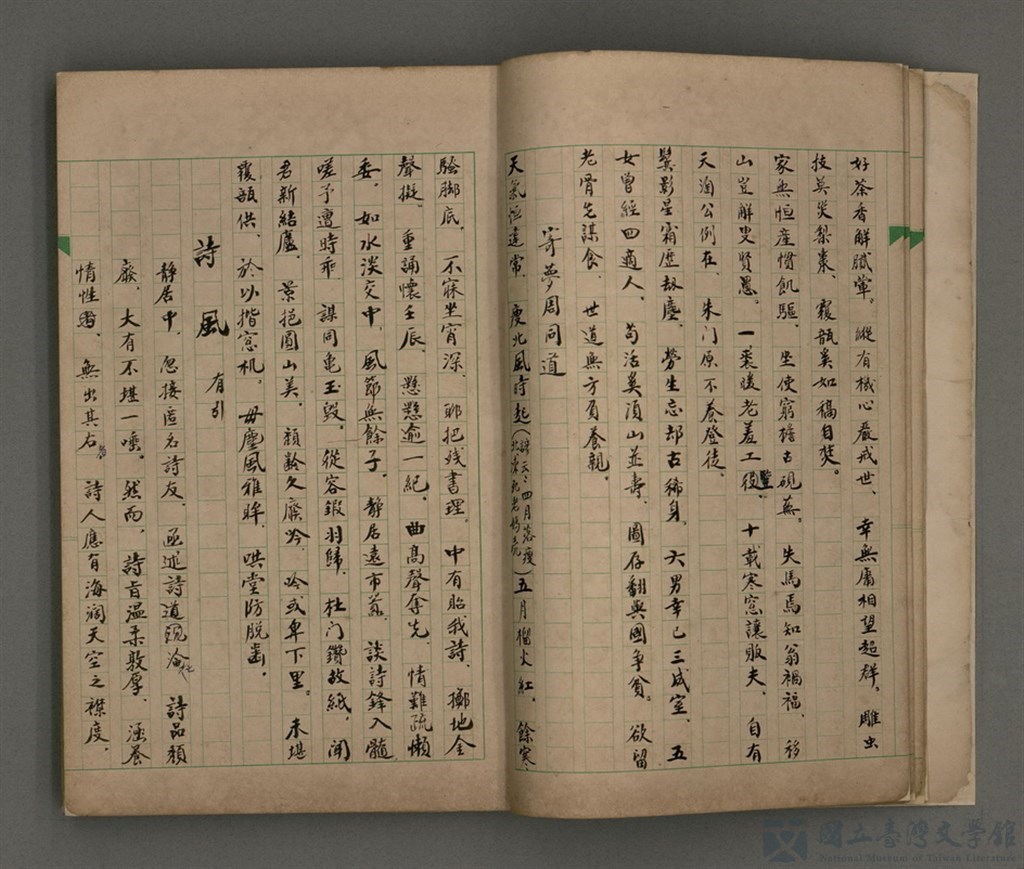 好茶香解膩葷。縱有機心嚴戒世、幸無屬相望超群、雕虫
技莫災梨棗、覆瓿奚如稿自焚。
家無恒產慣飢驅、坐使窮檐古硯蕪。失馬焉知翁禍福、移
山豈解叟賢愚。一裘暖老羞工後、十載寒窓讓販夫、自有
天淘公例在、朱门原不養登徒、
鬓影星霜歷劫塵、勞生忘却古稀身、六男幸已三成室、五
女曾經四適人、苟活奚須山並壽、圖存翻與國争貧。欲留
老骨先謀食、世道無方負養親。
寄夢周同道
天氣恒違常、慶北風時起（五月榴火紅、餘寒
骀脚底、不寐坐宵深、聊把残書理、中有貽我詩、擲地金
聲擬、重誦懷壬辰、懸懸逾一紀、曲高聲奪先、情難疏懶
委、如水淡交中、風節無餘子、靜居遠市囂、談詩鋒入髓、
嗟予遭時乖、謀同龟玉毀。從容鍛羽歸、杜门鑽故紙、聞
君新結廬、景挹圓山美、顏齡久廢吟、吟或卑下里。未堪
覆瓿供、於以揩窓机、毋塵風雅眸、哄堂防脱齒。
詩風
有引
靜居中、忽接匿名詩友、函述詩道現况、詩品頹
廢、大有不堪一唾。然而、詩旨温柔敦厚、涵養
情性者、無出其右、詩人應有海濶天空之襟度、
國立臺灣文學館
National Museum of Taiwan Literature